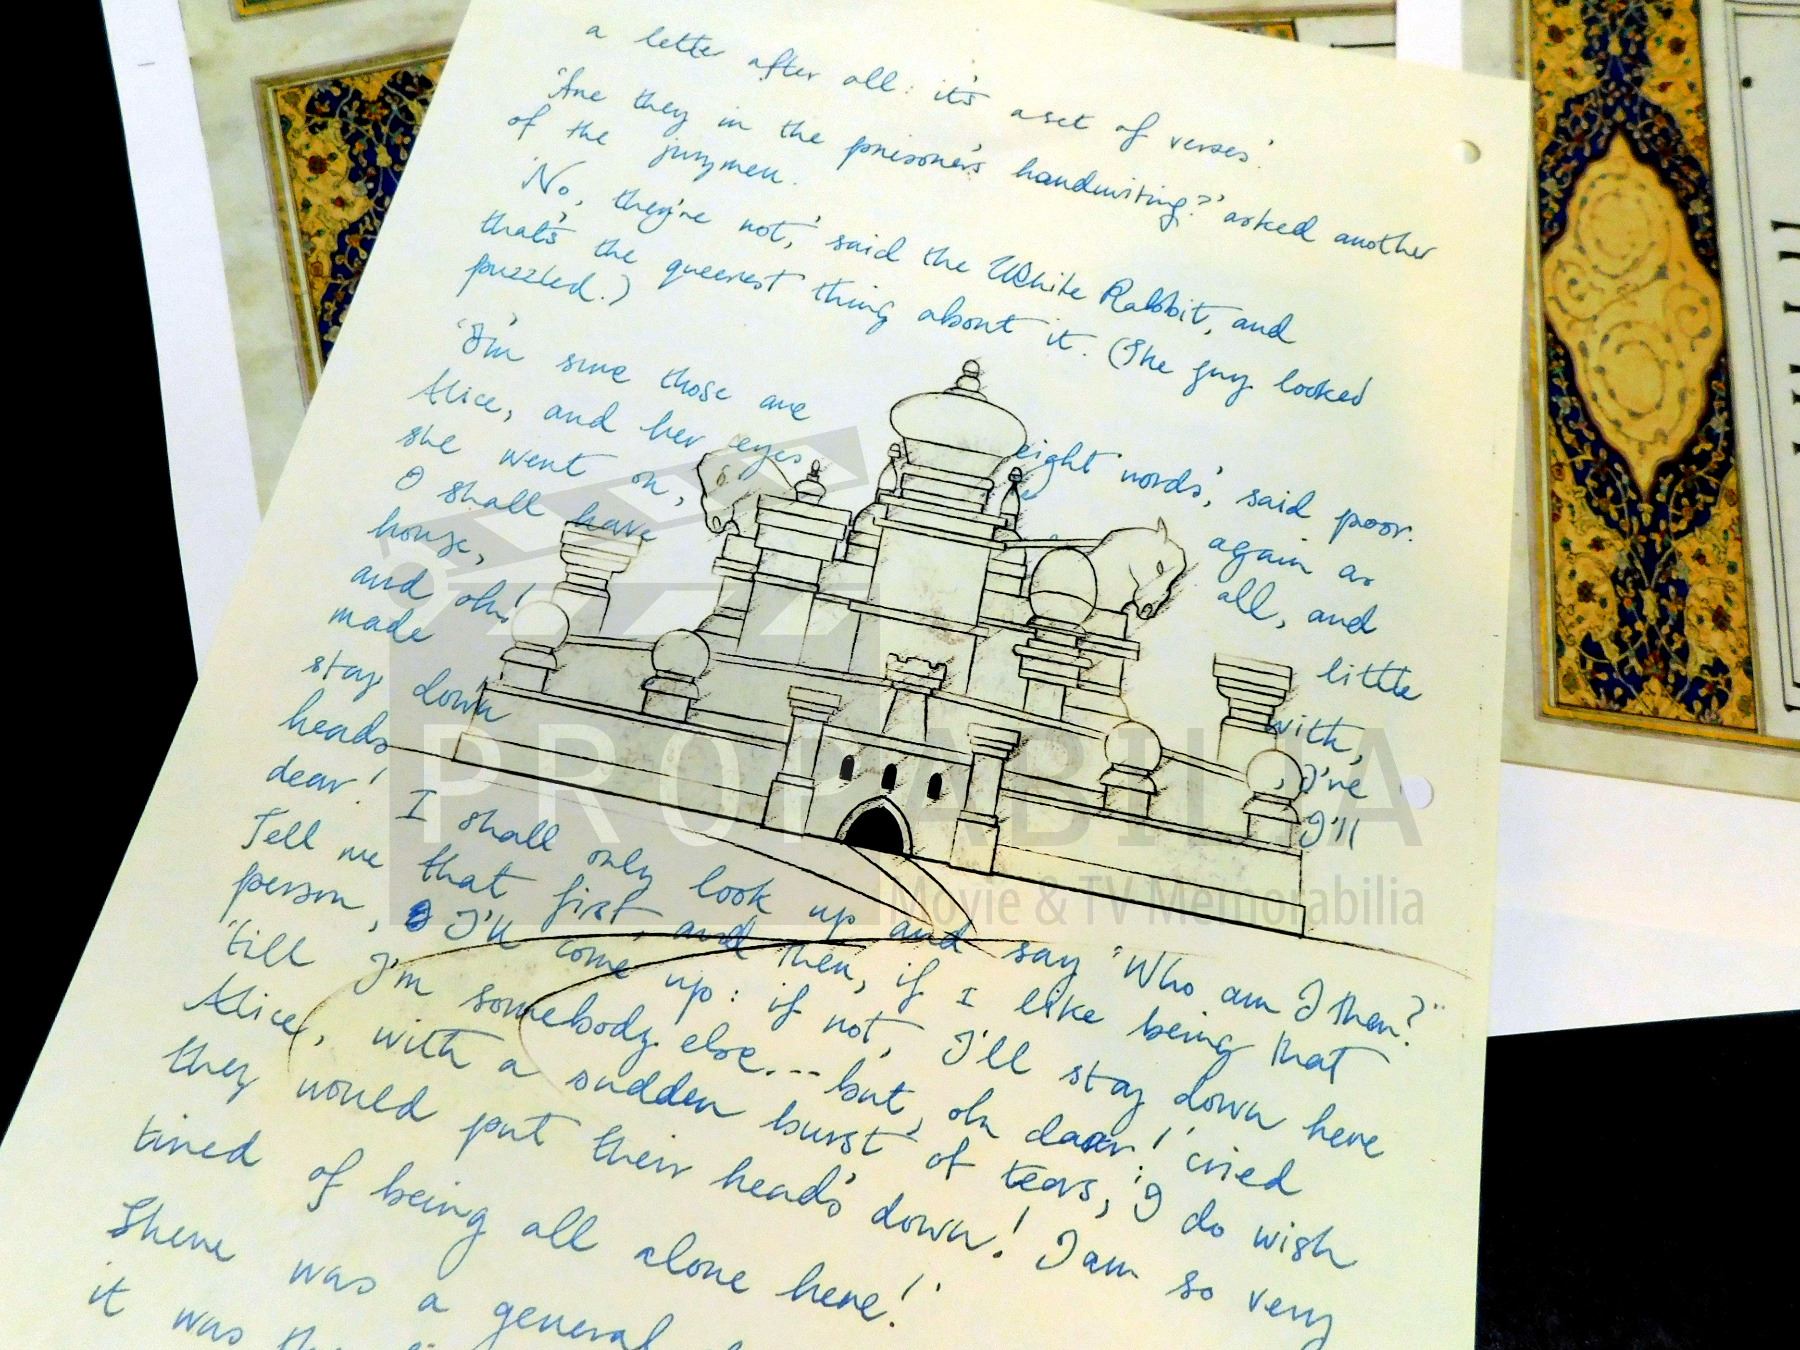 a letter after all: it's a set of verses.'
'Are they in the prisoner's handwriting?' asked another
of the jurymen.
'No, they're not,' said the White Rabbit, and
that's the queerest thing about it. (The guy looked
puzzled.)
'I'm sure those are eight words', said poor.
Alice, and her eyes again as
she went on, all, and
I shall have little
house, with,
and oh! I've
made I'll
stay down
heads
dear! I shall only look up and say "Who am I then?"
Tell me that first, and then, if I like being that
person, I'll come up: if not, I'll stay down here
'till I'm somebody else... but, oh dear!' cried
Alice, with a sudden burst of tears, 'I do wish
they would put their head's down! I am so very
tired of being all alone here!'
There was a general
it was the
PROPABILIA
Movie & TV Memorabilia